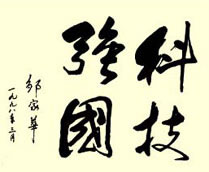 科技
強國
邹家華
一九九八年三月